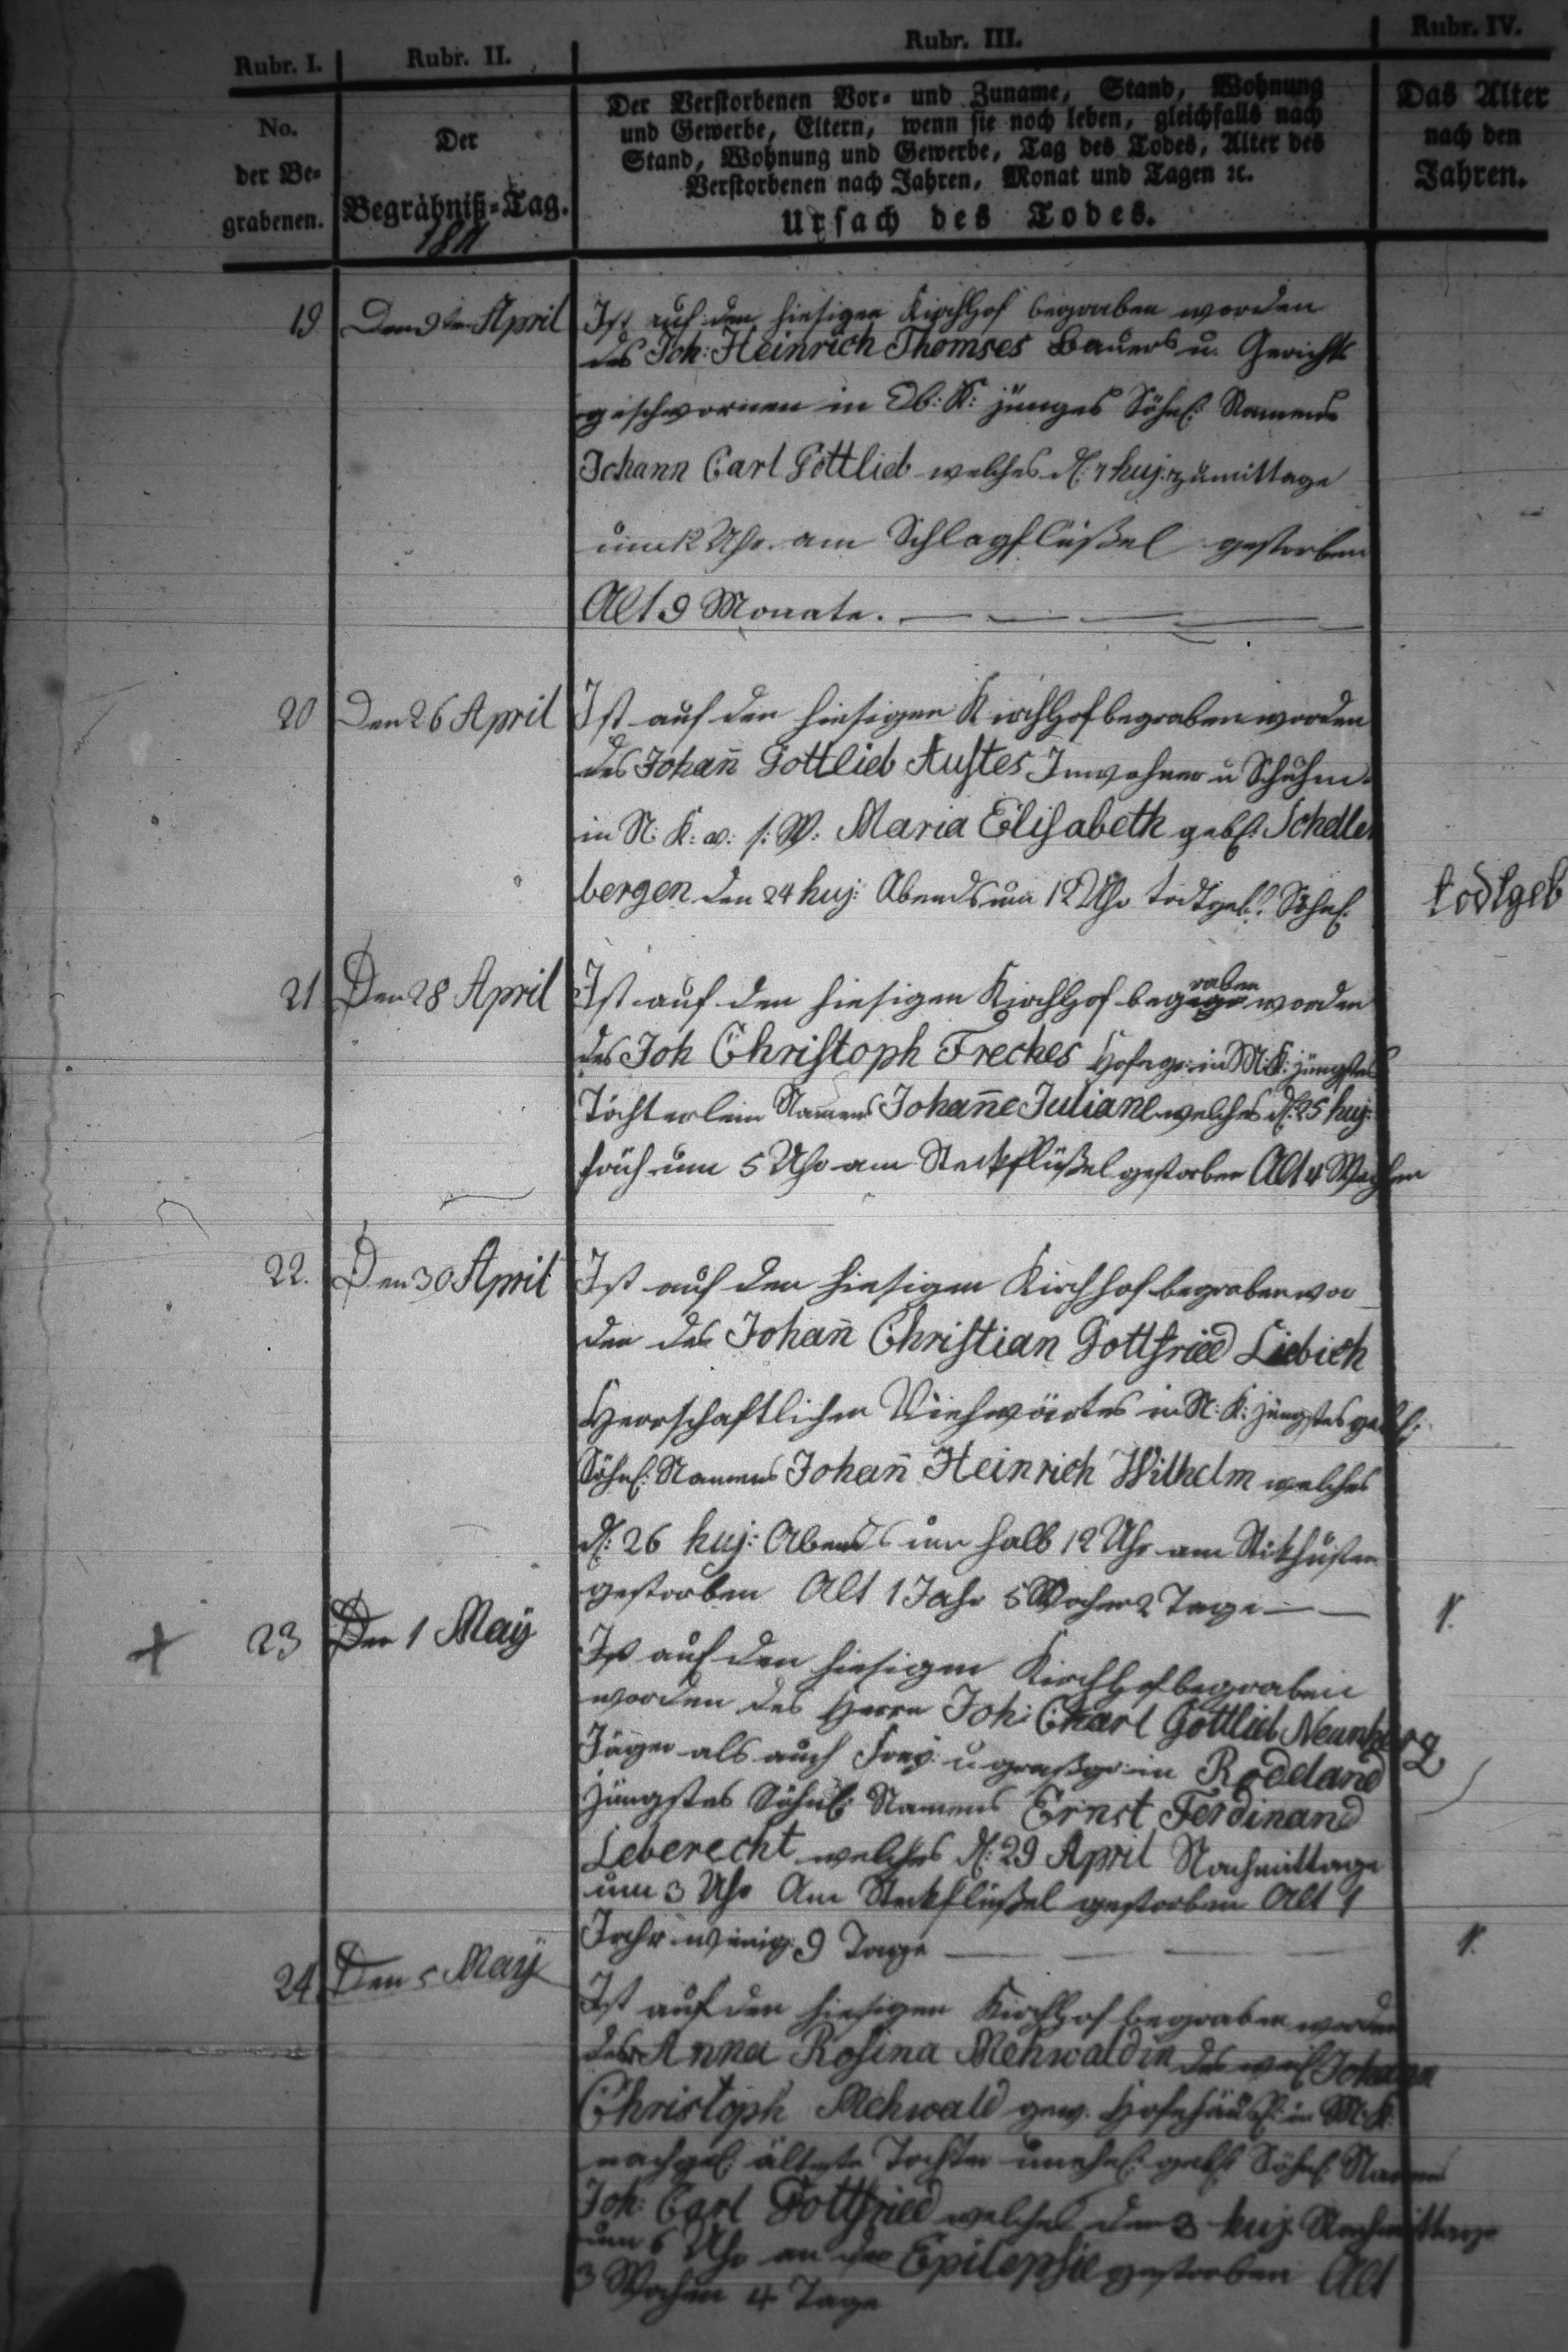 Rubr. I. Rubr. II. Rubr. III. Rubr. IV.
No.
der Be-
grabenen.
Der
Begräbniß-Tag.
1811
Der Verstorbenen Vor- und Zuname, Stand, Wohnung
und Gewerbe, Eltern, wenn sie noch leben, gleichfalls nach
Stand, Wohnung und Gewerbe, Tag des Todes, Alter des
Verstorbenen nach Jahren, Monat und Tagen ꝛc.
Ursach des Todes.
Das Alter
nach den
Jahren.
19 Den 9ten April Ist auf den hiesigen Kirchhof begraben worden
des Joh: Heinrich Thomses Bauers u. Gerichts
geschwornen in Ob: K: jünges Söhnl: Namens
Johann Carl Gottlieb welches d: 7 huj: zumittage
um 12 Uhr am Schlagflüßel gestorben
Alt 9 Monate.
20 Den 26 April Ist auf den hiesigen Kirchhof begraben worden
des Johañ Gottlieb Austes Inwohner u Schuhm.
in N: K: v: s: W: Maria Elisabeth geb: Schelle
bergen den 24 huj: Abends um 12 Uhr todtgeb: Söhnl: todtgeb
21 Den 28 April Ist auf den hiesigen Kirchhof begraben worden
des Joh Christoph Freches Hofegr: in M: K: jüngstes
Töchterlein Namens Johañe Juliane welches d: 25 huj:
früh um 5 Uhr am Steckflüßel gestorben Alt 4 Wochen
22. Den 30 April Ist auf den hiesigen Kirchhof begraben wor
den des Johañ Christian Gottfried Liebich
Herrschaftlichen Viehwärtes in N: K: jüngstes
Söhnl: Namens Johañ Heinrich Wilhelm welches
d: 26 huj: Abends um halb 12 Uhr am Stikhusten
gestorben Alt 1 Jahr 5 Wochen 2 Tage 1.
23 Den 1 May Ist auf den hiesigen Kirchhof begraben
worden des Herrn Joh: Charl Gottlieb Neunherg
Jäger als auch Frey: u in Rodeland
jüngstes Söhnl: Namens Ernst Ferdinand
Leberecht welches d: 29 April Nachmittage
um 3 Uhr Am Steckflüßel gestorben Alt 1
Jahr wenig: 9 Tage 1.
24. Den 5 May Ist auf den hiesigen Kirchhof begraben worden
der Anna Rosina Mehwaldin des weil: Johann
Christoph Mehwald gew. Hofehäusl: in M: K:
nachgel: älteste Tochter unehel: geb: Söhnl: Namens
Joh: Carl Gottfried welches den 3 huj: Nachmittage
um 6 Uhr an der Epilepsie gestorben Alt
3 Wochen 4 Tage